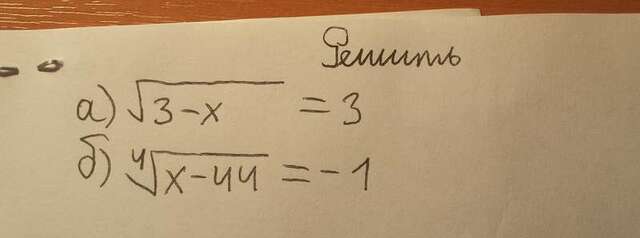 Решить
а) √3-x = 3
б) ∜x-44 = -1